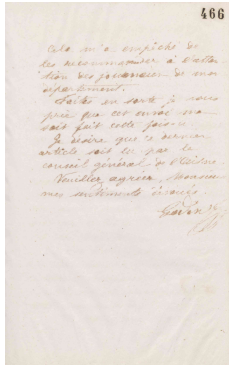 466
Cela m'a empêché de
les recommander à l'atten
tion des journaux de mon
département.
Faites en sorte je vous
prie que cet envoi me
soit fait cette
Je désire que ce dernier
article soit lu par le
conseil général de l'Aisne.
Veuillez agréer, Monsieur
mes sentiments
Godin